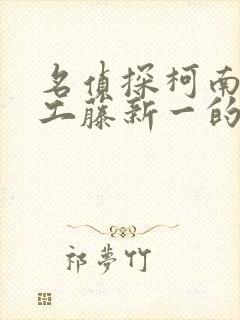 名偵探柯南
工藤新一的
祁夢竹